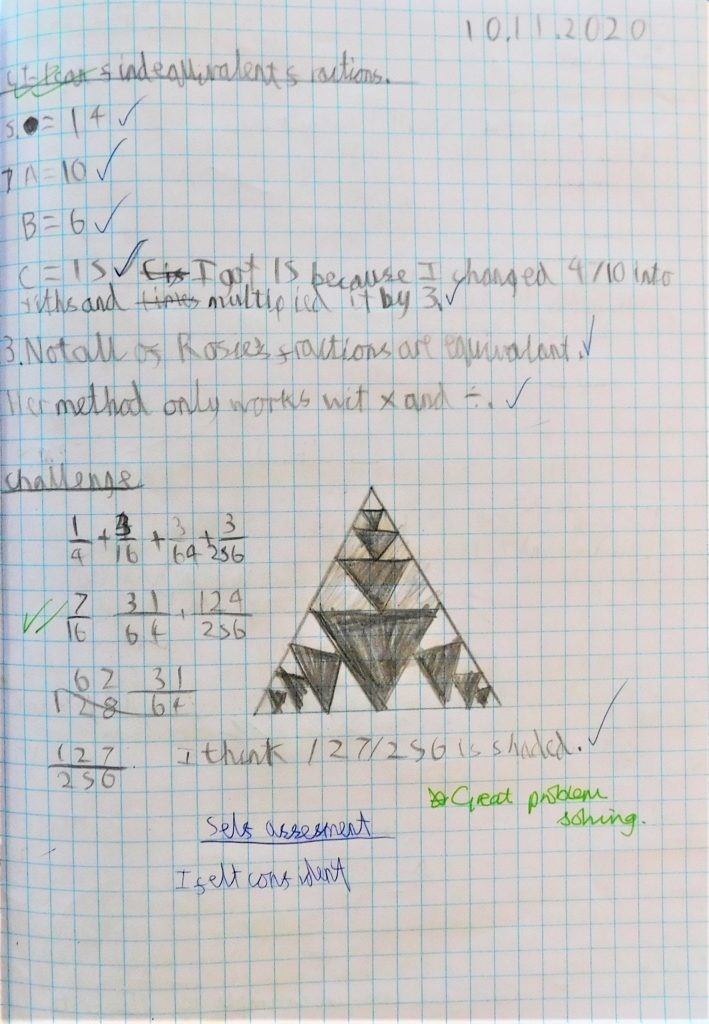 10.11.2020
find equivalent fractions.
5. = 14 ✓
7 A = 10 ✓
B = 6 ✓
C = 15 ✓ I got 15 because I changed 4/10 into
fiths and times multiplied it by 3. ✓
3. Not all of Rosie's fractions are equivalant. ✓
Her method only works wit × and ÷. ✓
challenge
1/4 + 3/16 + 3/64 + 3/256
7/16 31/64 + 124/256
62/128 31/64
127/256 I think 127/256 is shaded. ✓
Great problem
solving.
Self assesment
I felt confident